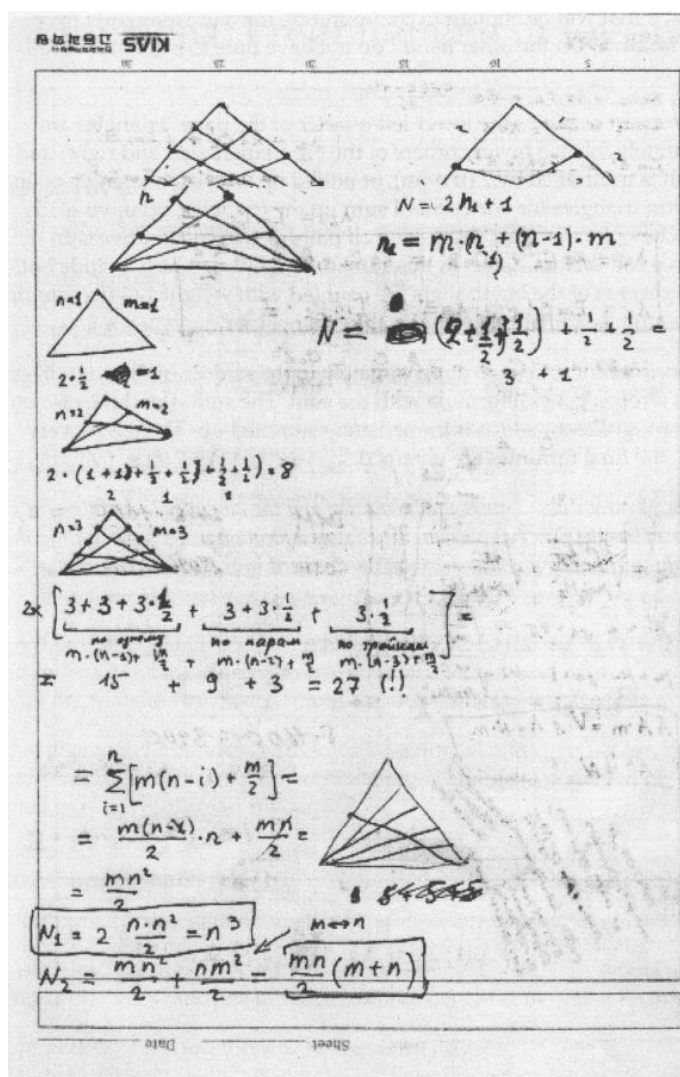 KIAS
n
N = 2n₁ + 1
n₁ = m·(n + (n-1)·m
n=1 m=1
N = (2+½+½) + ½ + ½ =
3 · 1
2·½ =1
n=2 m=2
2·(1+1+½+½+½+½)=8
2 1 1
n=3 m=3
2x [3+3+3·½ + 3+3·½ + 3·½] =
по одному по парам по тройкам
m·(n-1)+m/2 + m·(n-2)+m/2 + m·(n-3)+m/2
= 15 + 9 + 3 = 27 (!)
= Σ_{i=1}^{n} [m(n-i) + m/2] =
= m(n-1)/2 ·n + mn/2 =
= mn²/2
N₁ = 2 n·n²/2 = n³
m↔n
N₂ = mn²/2 + nm²/2 = mn/2 (m+n)
Date Sheet